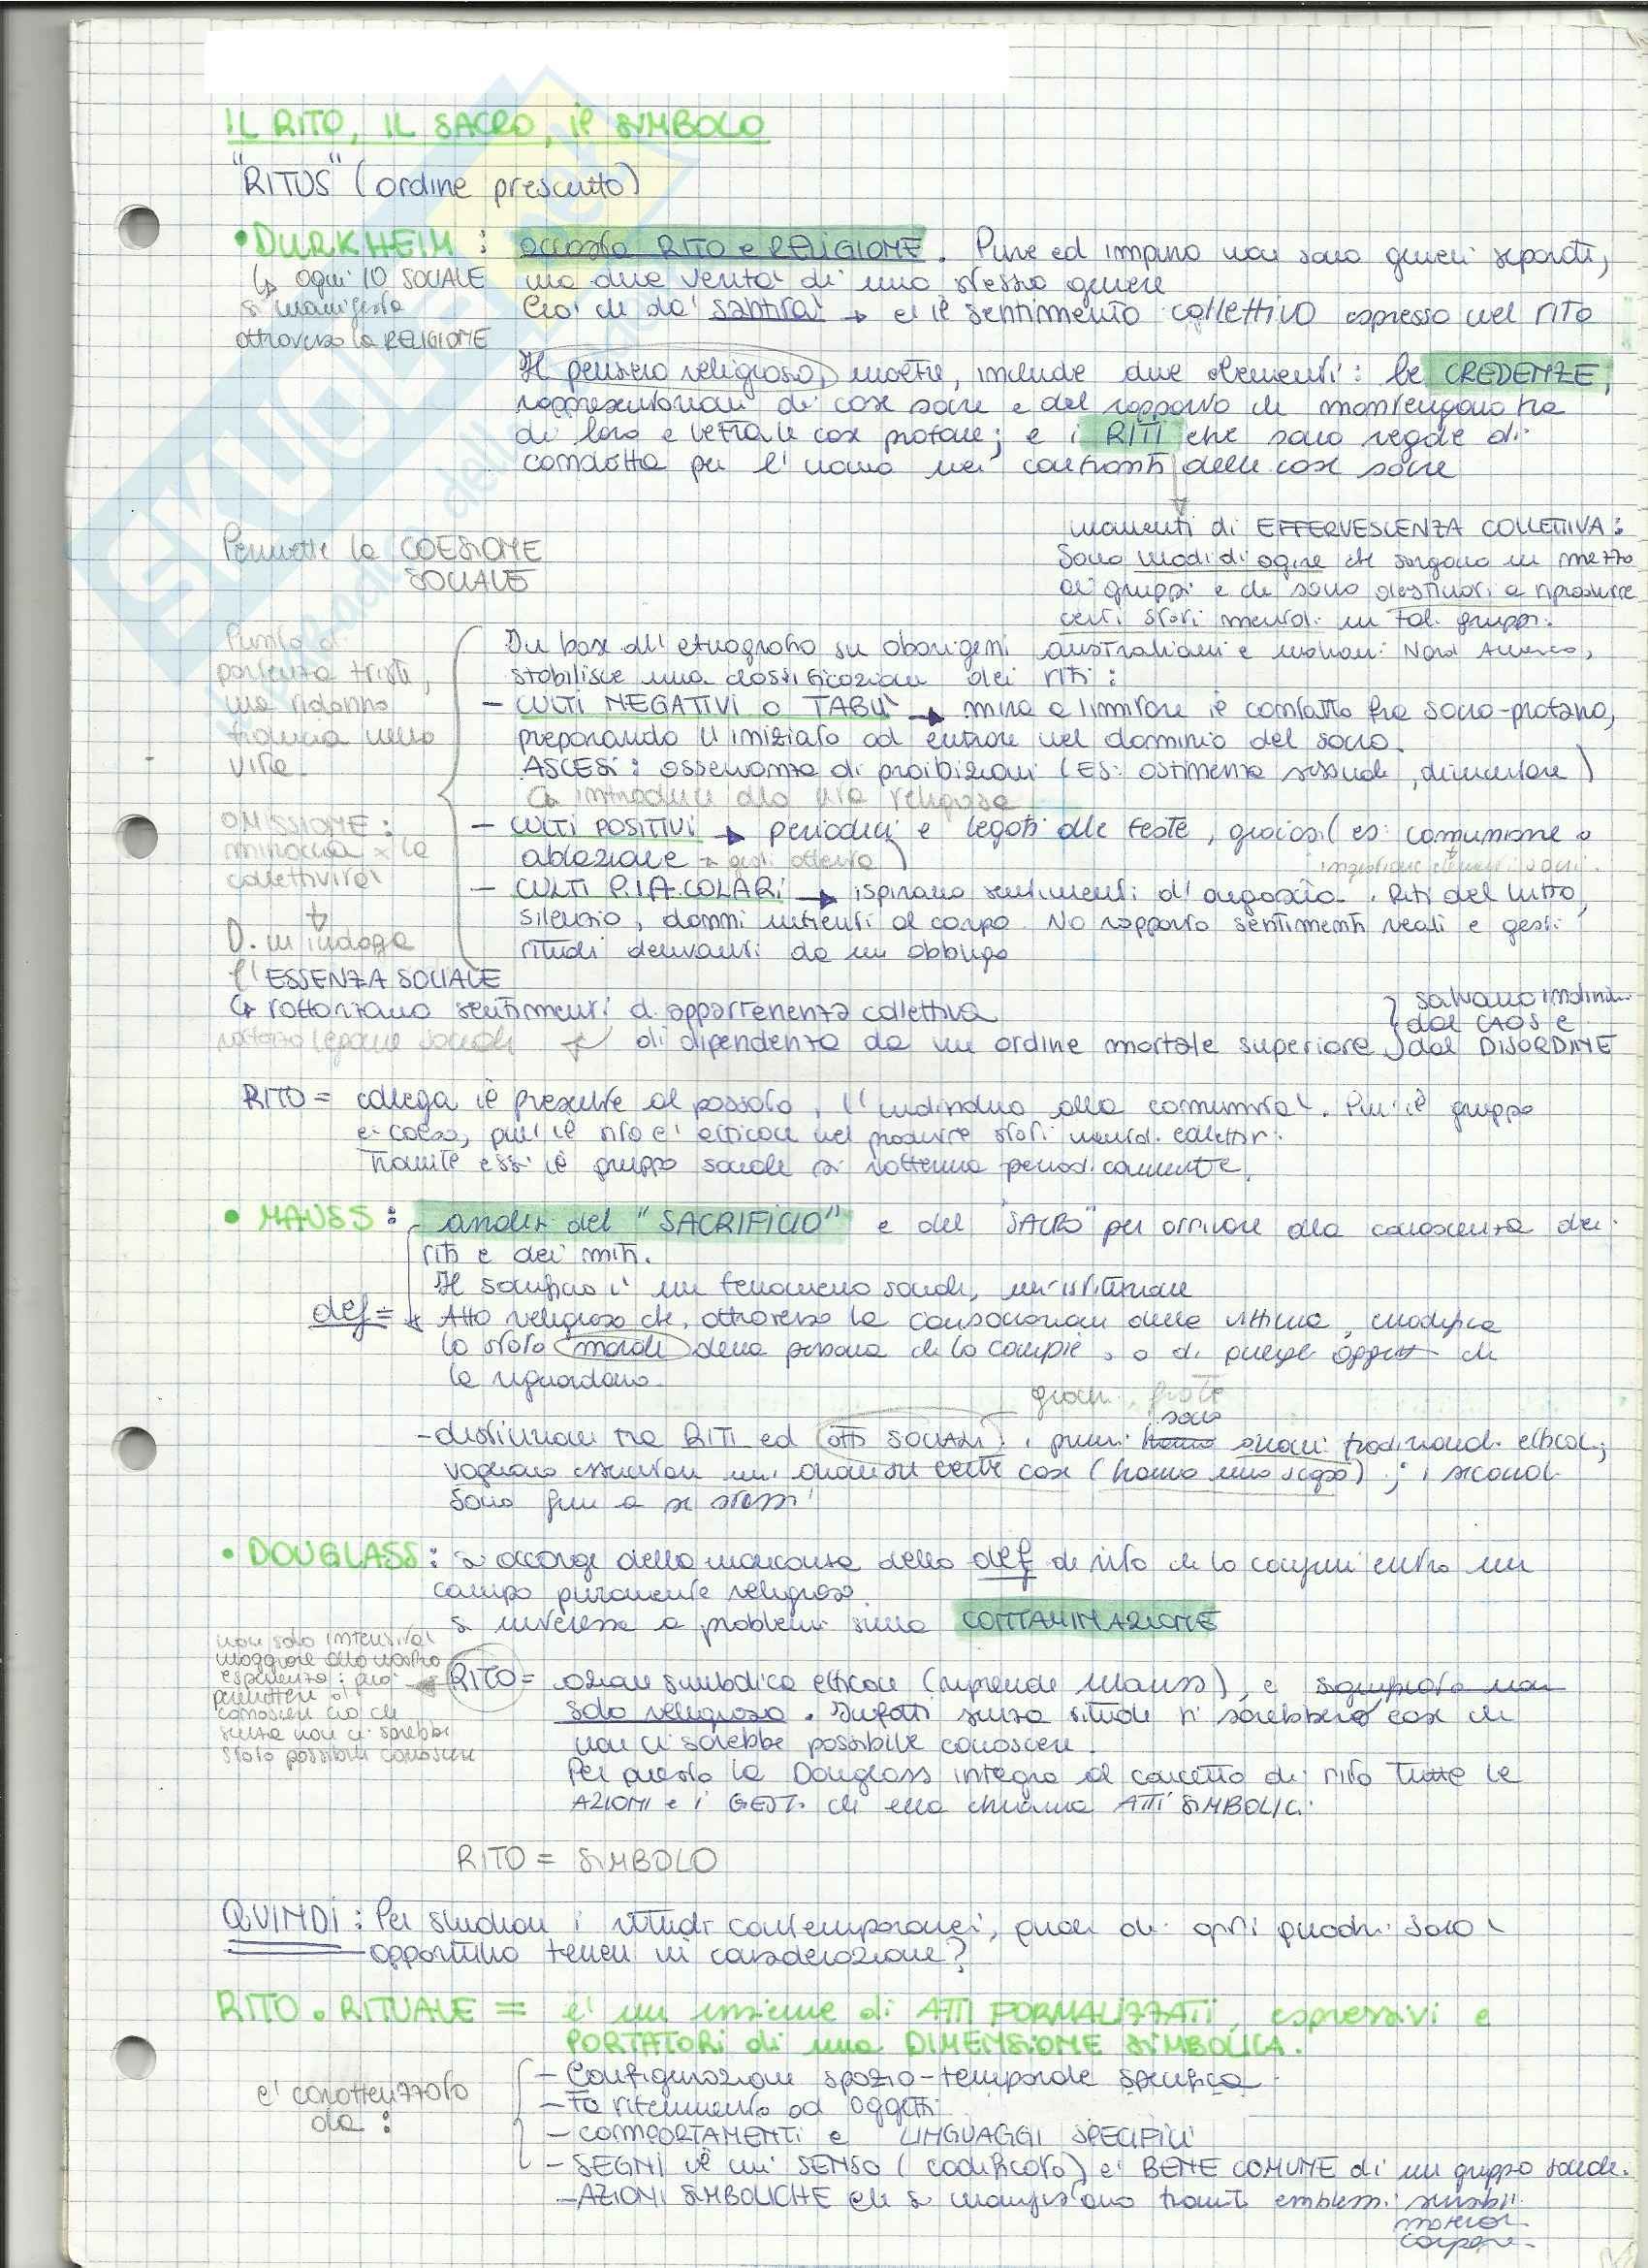 IL RITO, IL SACRO, il SIMBOLO
"RITUS" (ordine prescritto)
• DURKHEIM : accosta RITO e RELIGIONE. Puro ed impuro non sono generi separati,
↳ ogni IO SOCIALE
si manifesta
attraverso la RELIGIONE
ma due varietà di uno stesso genere
Ciò che dà santità → è il sentimento collettivo espresso nel rito
Il pensiero religioso, inoltre, include due elementi: le CREDENZE,
rappresentazioni di cose sacre e del rapporto che mantengono tra
di loro e le cose profane; e i RITI che sono regole di
condotta per l'uomo nei confronti delle cose sacre
momenti di EFFERVESCENZA COLLETTIVA:
sono modi di agire che sorgono in mezzo
a gruppi e che sono destinati a riprodurre
certi stati mentali in tali gruppi.
Permette la COESIONE
SOCIALE
Punto di
partenza tristi,
ma ridanno
fiducia nella
vita.
OMISSIONE:
minaccia x la
collettività
D. indaga
l'ESSENZA SOCIALE
In base all'etnografia su aborigeni australiani e indiani Nord America,
stabilisce una classificazione dei riti:
- CULTI NEGATIVI o TABU' → mira a limitare il contatto fra sacro-profano,
preparando l'iniziato ad entrare nel dominio del sacro.
ASCESI: osservanza di proibizioni (ES: astinenza sessuale, alimentare)
↳ introduce alla vita religiosa
- CULTI POSITIVI → periodici e legati alle feste, gioiosi (es: comunione o
oblazione → gesti offerta)
- CULTI PIACOLARI → ispirano sentimenti d'angoscia. Riti del lutto,
silenzio, danni inferti al corpo. No rapporto sentimenti reali e gesti
rituali derivanti da un obbligo
↳ rafforzano sentimenti di appartenenza collettiva
rafforza legame sociale
di dipendenza da un ordine mortale superiore
salvano individui
dal CAOS e
dal DISORDINE
RITO = collega il presente al passato, l'individuo alla comunità. Più il gruppo
è coeso, più il rito è efficace nel produrre stati mentali collettivi.
Tramite essi il gruppo sociale si riafferma periodicamente.
• MAUSS : analisi del "SACRIFICIO" e del "SACRO" per arrivare alla conoscenza dei
riti e dei miti.
Il sacrificio è un fenomeno sociale, un'istituzione
def = Atto religioso che, attraverso la consacrazione della vittima, modifica
lo stato morale della persona che lo compie, o di quegli oggetti che
la riguardano.
giochi, feste
- distinzione tra RITI ed atti SOCIALI, i primi sono azioni tradizionali efficaci;
vogliono esercitare un'azione su certe cose (hanno uno scopo); i secondi
sono fini a se stessi
• DOUGLASS: si accorge della mancanza della def di rito che lo confini entro un
campo puramente religioso.
si interessa a problemi sulla CONTAMINAZIONE
non solo intensità
maggiore alla nostra
esperienza: può
permettere di
conoscere ciò che
senza non ci sarebbe
stato possibile conoscere
RITO = azione simbolica efficace (riprende Mauss), e significato non
solo religioso. Infatti senza rituale vi sarebbero cose che
non ci sarebbe possibile conoscere.
Per questo la Douglass integra al concetto di rito tutte le
AZIONI e i GESTI che ella chiama ATTI SIMBOLICI.
RITO = SIMBOLO
QUINDI : Per studiare i rituali contemporanei, quali di questi quadri sarà
opportuno tenere in considerazione?
RITO o RITUALE = è un insieme di ATTI FORMALIZZATI, espressivi e
PORTATORI di una DIMENSIONE SIMBOLICA.
è caratterizzato
da :
- Configurazione spazio-temporale specifica
- Fa riferimento ad oggetti
- COMPORTAMENTI e LINGUAGGI SPECIFICI
- SEGNI il cui SENSO (codificato) è BENE COMUNE di un gruppo sociale.
- AZIONI SIMBOLICHE che si manifestano tramite emblemi sensibili
materiali
corporei